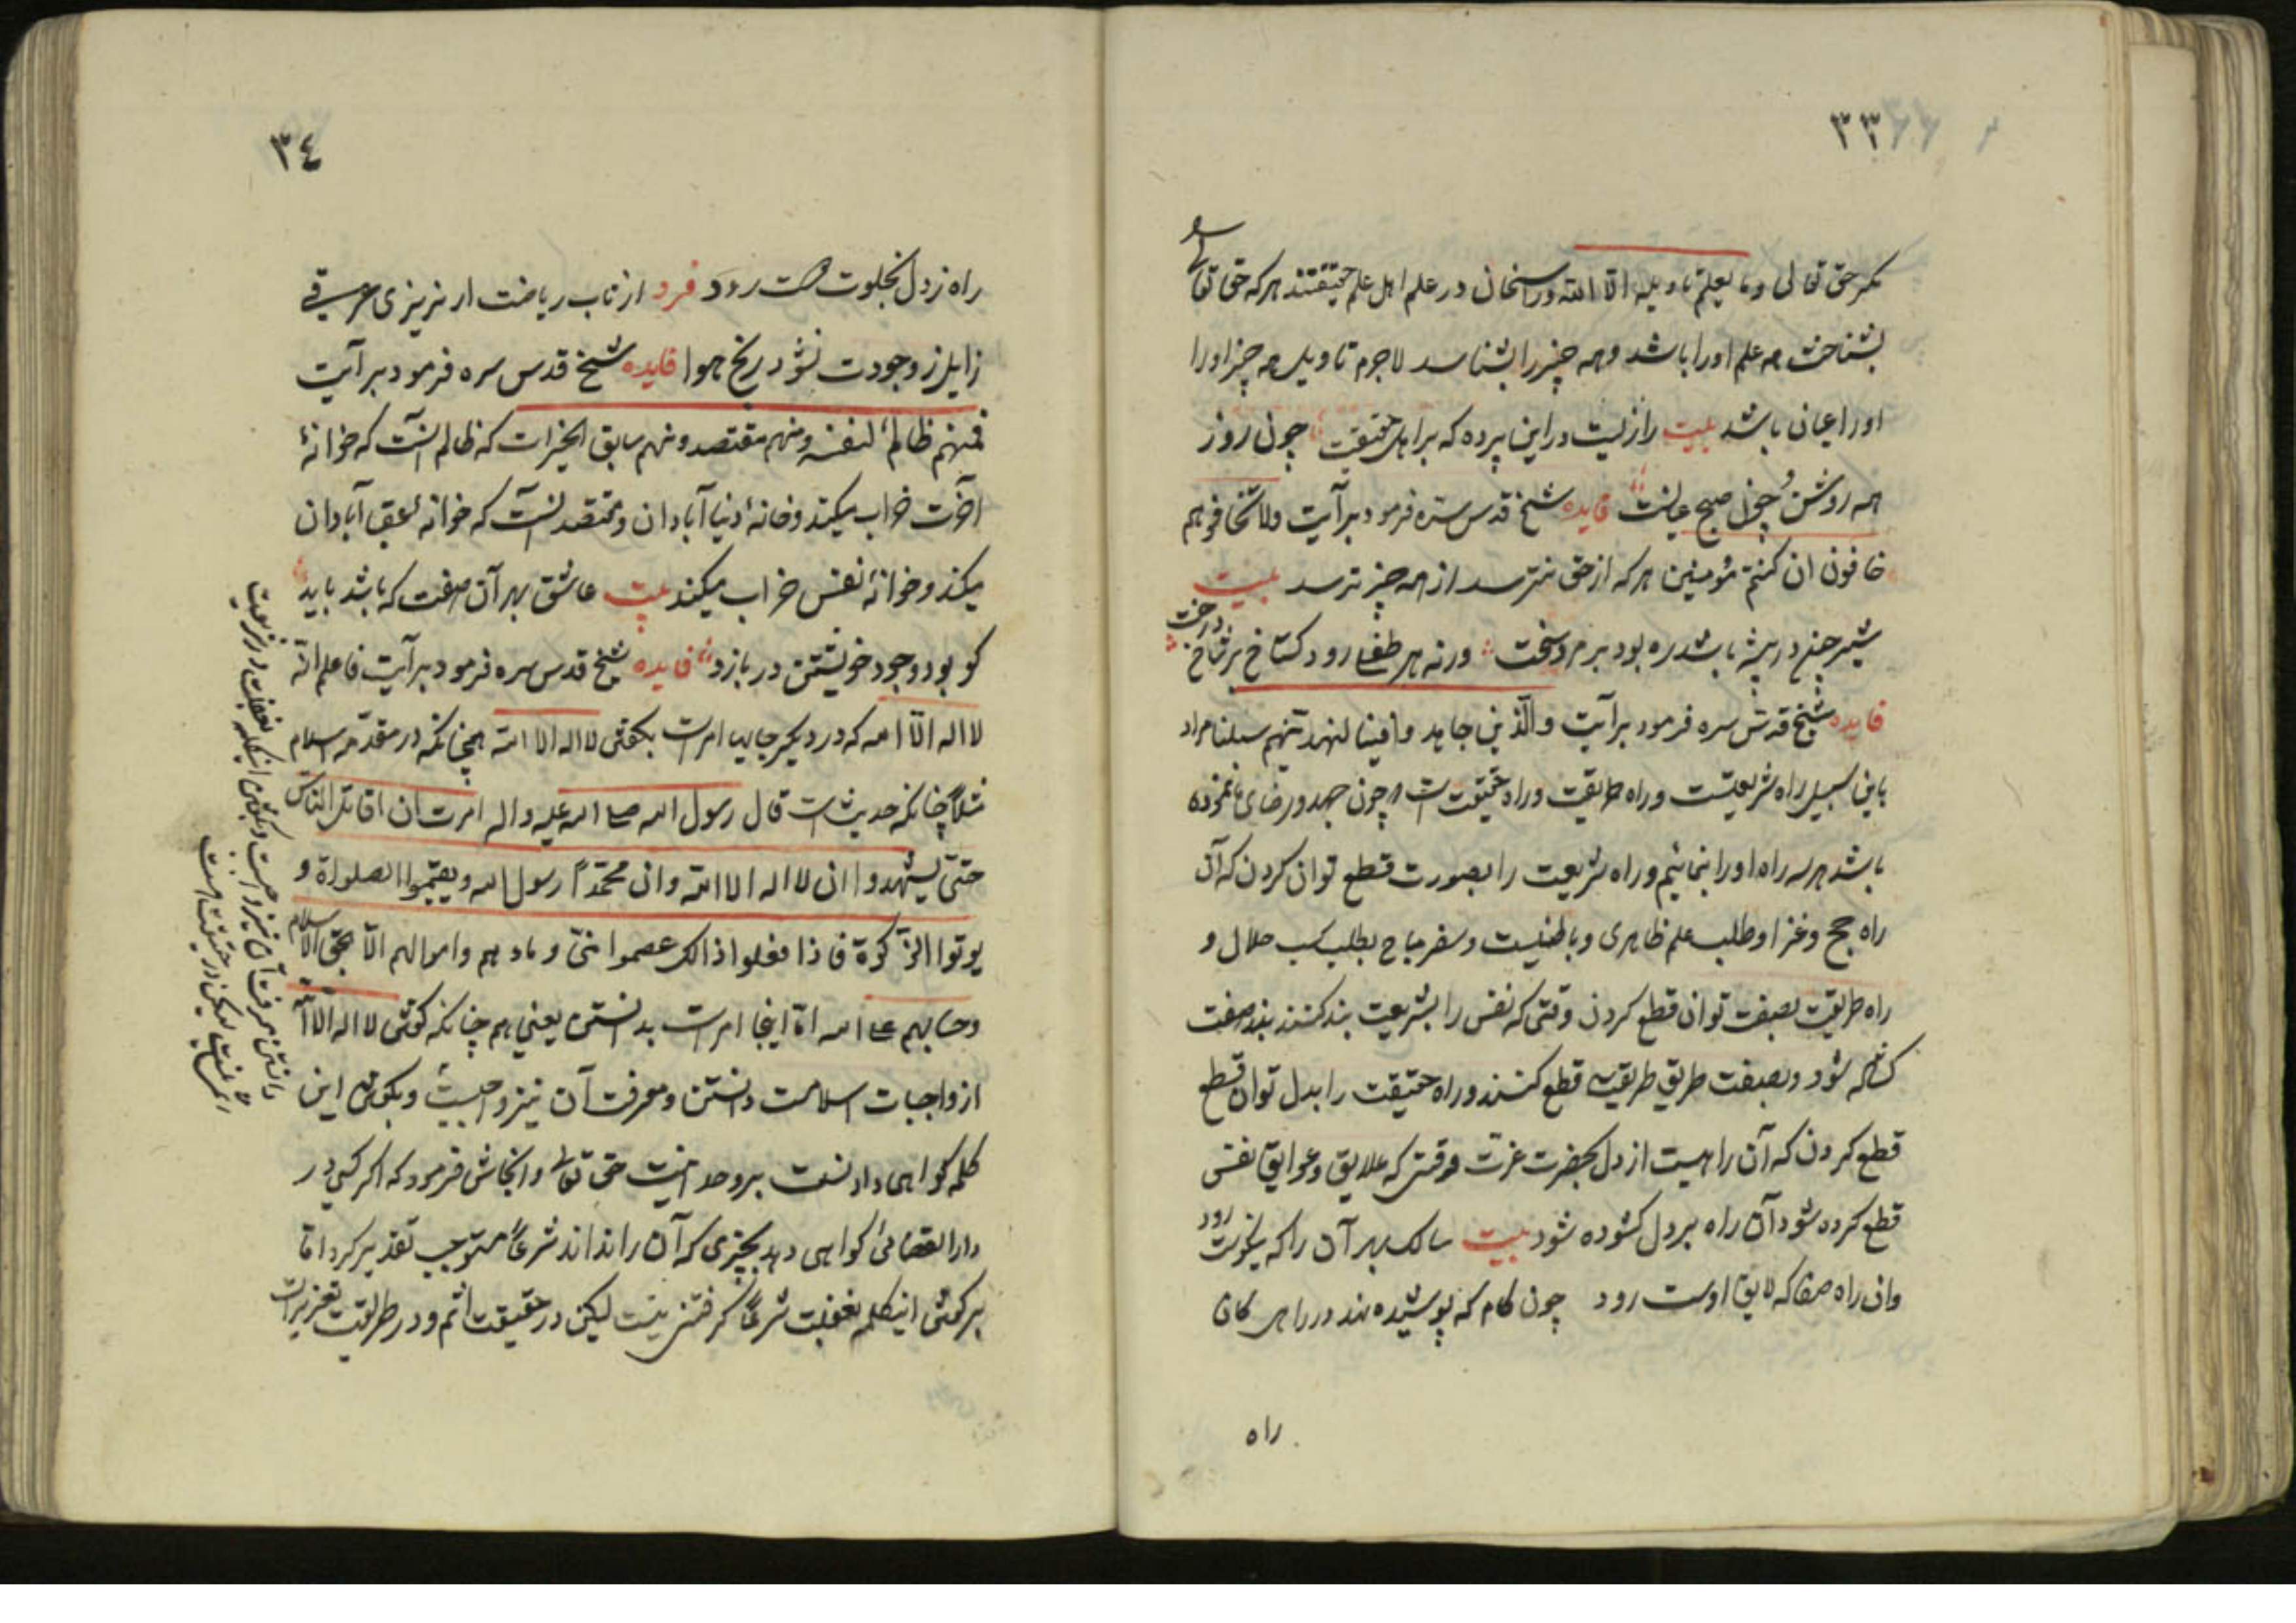 ٣٣
مکر حق تعالی وما یعلم تاویله الا الله وراسخان در علم اهل علم حقیقتند هر که حق تعالی
بشناخت همه علم اورا باشد وهمه چیز را بشناسد لاجرم تاویل همه چیز اورا
اورا عیان باشد بیت رازیست در این پرده که بر اهل حقیقت چون روز
همه روشن و چون صبح عیانست فایده شیخ قدس سره فرمود بر آیت ولا تخافوهم
خافون ان کنتم مؤمنین هر که از حق نترسد از همه چیز ترسد بیت
شیر چون در بیشه باشد ره بود بر مرد سخت ورنه هر طفلی رود کستاخ بر شاخ درخت
فایده شیخ قدس سره فرمود بر آیت والذین جاهدوا فینا لنهدینهم سبلنا مراد
باین سبیل راه شریعتست وراه طریقت وراه حقیقت است چون جهد در رضای ما نموده
باشد هر سه راه اورا بنمائیم وراه شریعت را بصورت قطع توان کردن که آن
راه حج وغزا وطلب علم ظاهری وباطنیست وسفر مباح بطلب کسب حلال و
راه طریقت بصفت توان قطع کردن وقتی که نفس را بشریعت بند کنند بند صفت
کشاده شود وبصفت طریق طریقت قطع کنند وراه حقیقت را بدل توان قطع
قطع کردن که آن راهیست از دل بحضرت عزت وقتی که علایق وعوایق نفس
قطع کرده شود آن راه بر دل کشوده شود بیت سالک بهر آن راه که بخوت رود
وان راه صفا که لایق اوست رود چون کام که پوشیده نهد در راهی کان
راه
٣٤
راه ز دل بخلوت هست رود فرد از تاب ریاضت ار نریزی عرقی
زایل ز وجودت نشود رنج هوا فایده شیخ قدس سره فرمود بر آیت
فمنهم ظالم لنفسه ومنهم مقتصد ومنهم سابق الخیرات که ظالم آنست که خوانهٔ
آخرت خراب میکند وخانهٔ دنیا آبادان ومقتصد آنست که خوانهٔ عقبی آبادان
میکند وخوانهٔ نفس خراب میکند بیت عاشق بهر آن صفت که باشد باید
کو بود وجود خویشتن در بازد فایده شیخ قدس سره فرمود بر آیت فاعلم انه
لا اله الا الله که در دیکر جایها امرست بکفتن لا اله الا الله همچنانکه در مقدمه اسلام
مثلاً چنانکه حدیث است قال رسول الله صلی الله علیه واله امرت ان اقاتل الناس
حتی یشهدوا ان لا اله الا الله وان محمداً رسول الله ویقیموا الصلواة و
یوتوا الزکوة فاذا فعلوا ذالک عصموا منی وماءهم واموالهم الا بحق الاسلام
وحسابهم علی الله اما اینجا امرست بدانستن یعنی هم چنانکه کوشی لا اله الا الله
از واجبات اسلامست دانستن ومعرفت آن نیز واجبست وبکوش این
کلمه کواهی دادنست بر وحدانیت حق تعالی وانجاش فرمود که اکر کسی در
دار القضائی کواهی دهد بچیزی که آن را نداند شرعاً مستوجب تعذیر کردد اما
بر کوشی اینکلمه بغفلت شرعاً کرفتنی نیست لیکن در حقیقت اثم ودر طریقت تعزیر است
دانستن معرفت آن نیز واجبست